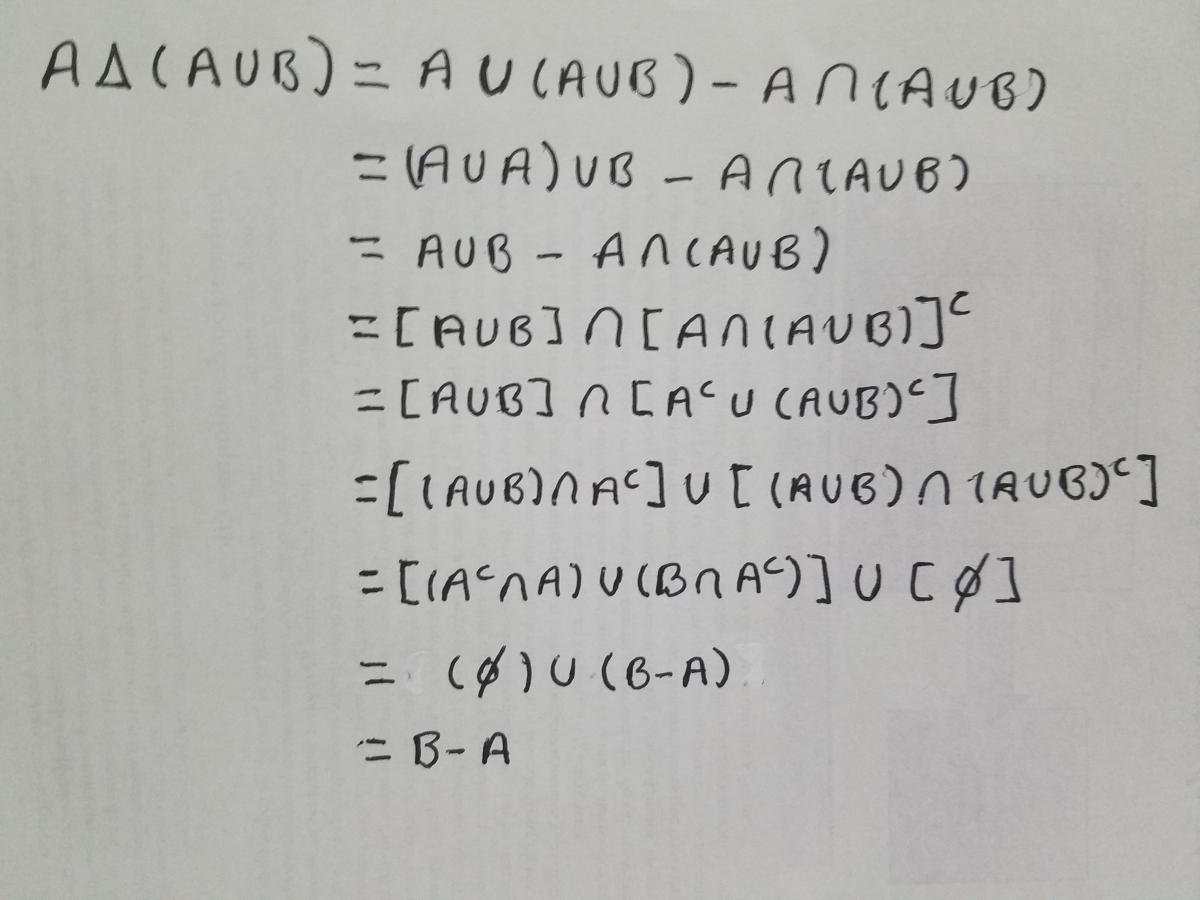 A Δ (A∪B) = A ∪ (A∪B) - A ∩ (A∪B)
= (A∪A) ∪ B - A ∩ (A∪B)
= A∪B - A ∩ (A∪B)
= [A∪B] ∩ [A ∩ (A∪B)]ᶜ
= [A∪B] ∩ [Aᶜ ∪ (A∪B)ᶜ]
= [(A∪B) ∩ Aᶜ] ∪ [(A∪B) ∩ (A∪B)ᶜ]
= [(Aᶜ∩A) ∪ (B∩Aᶜ)] ∪ [∅]
= (∅) ∪ (B-A)
= B-A